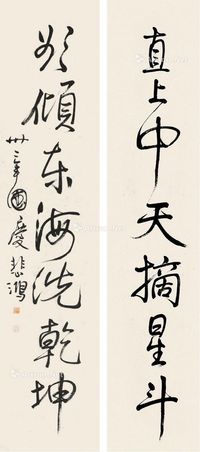 直上中天摘星斗
欲傾东海洗乾坤
卅三年國慶 悲鴻